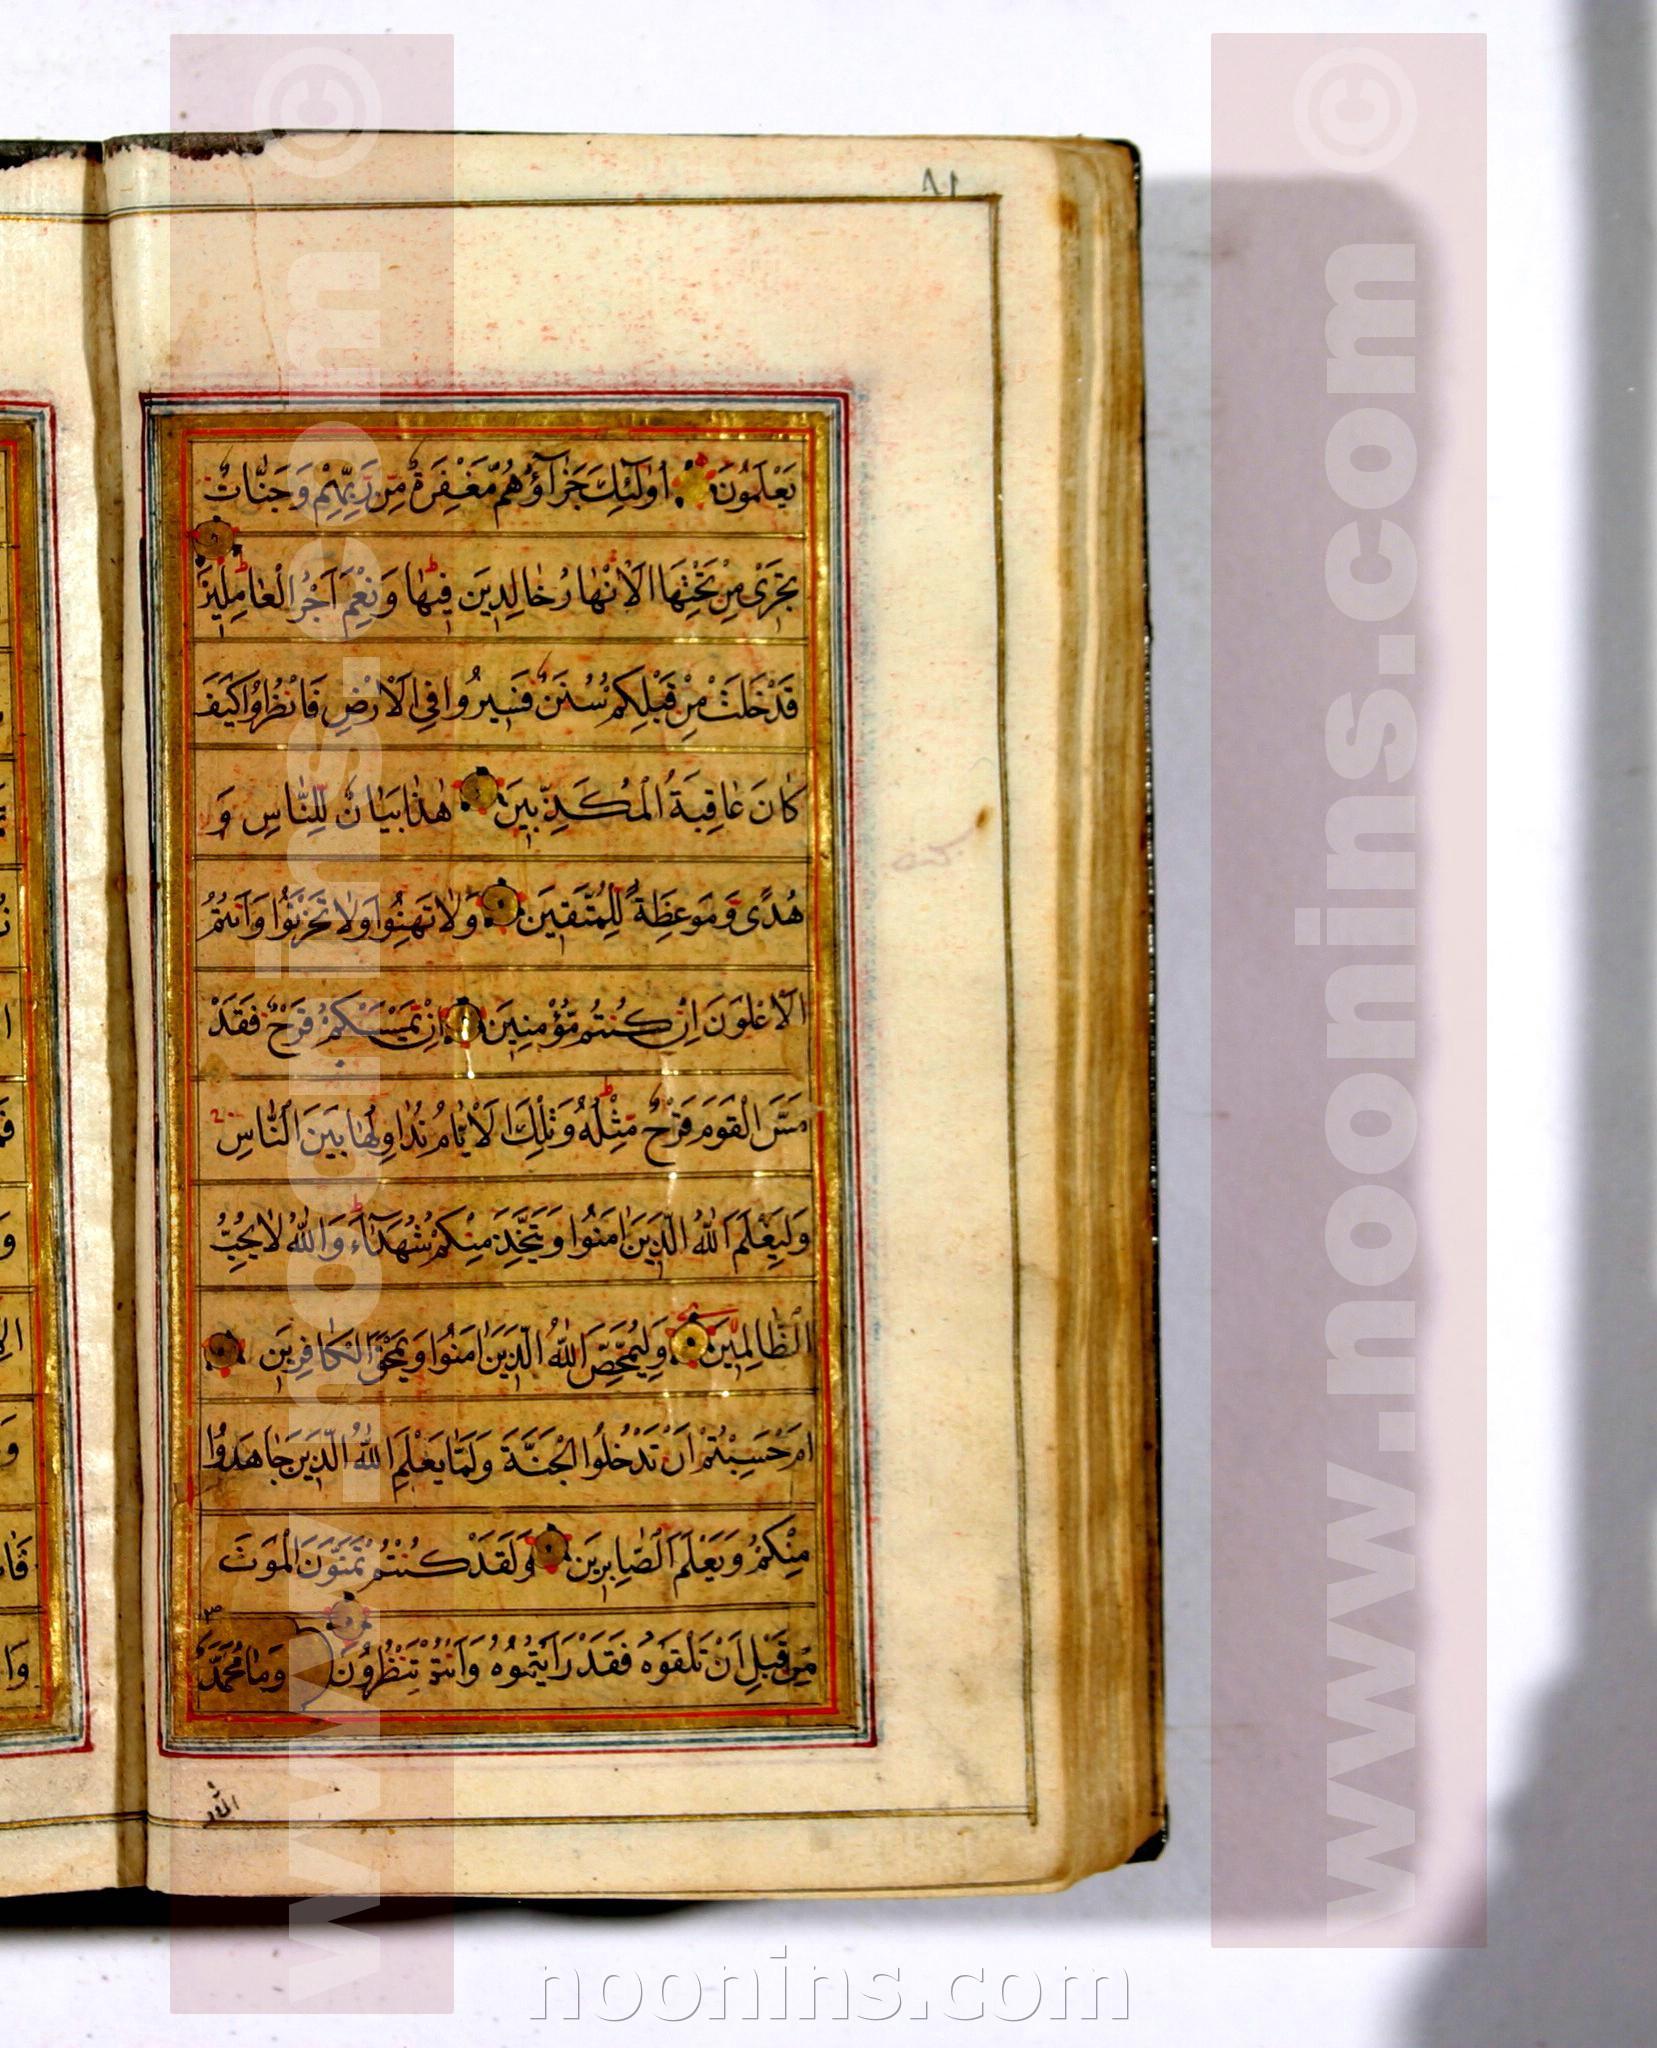 ٨١
يَعْلَمُونَ اُولٰٓئِكَ جَزَآؤُهُمْ مَّغْفِرَةٌ مِّن رَّبِّهِمْ وَجَنَّاتٌ
تَجْرِی مِنْ تَحْتِهَا الْاَنْهَارُ خَالِدِينَ فِيهَا وَنِعْمَ اَجْرُ الْعَامِلِينَ
قَدْ خَلَتْ مِنْ قَبْلِكُمْ سُنَنٌ فَسِيرُوا فِي الْاَرْضِ فَانْظُرُوا كَيْفَ
كَانَ عَاقِبَةُ الْمُكَذِّبِينَ هٰذَا بَيَانٌ لِلنَّاسِ وَ
هُدًى وَمَوْعِظَةٌ لِلْمُتَّقِينَ وَلَا تَهِنُوا وَلَا تَحْزَنُوا وَاَنْتُمُ
الْاَعْلَوْنَ اِنْ كُنْتُمْ مُّؤْمِنِينَ اِنْ يَمْسَسْكُمْ قَرْحٌ فَقَدْ
مَسَّ الْقَوْمَ قَرْحٌ مِّثْلُهُ وَتِلْكَ الْاَيَّامُ نُدَاوِلُهَا بَيْنَ النَّاسِ
وَلِيَعْلَمَ اللّٰهُ الَّذِينَ اٰمَنُوا وَيَتَّخِذَ مِنْكُمْ شُهَدَآءَ وَاللّٰهُ لَا يُحِبُّ
الظَّالِمِينَ وَلِيُمَحِّصَ اللّٰهُ الَّذِينَ اٰمَنُوا وَيَمْحَقَ الْكَافِرِينَ
اَمْ حَسِبْتُمْ اَنْ تَدْخُلُوا الْجَنَّةَ وَلَمَّا يَعْلَمِ اللّٰهُ الَّذِينَ جَاهَدُوا
مِنْكُمْ وَيَعْلَمَ الصَّابِرِينَ وَلَقَدْ كُنْتُمْ تَمَنَّوْنَ الْمَوْتَ
مِنْ قَبْلِ اَنْ تَلْقَوْهُ فَقَدْ رَاَيْتُمُوهُ وَاَنْتُمْ تَنْظُرُونَ وَمَا مُحَمَّدٌ
www.noonins.com ©
www.noonins.com ©
noonins.com